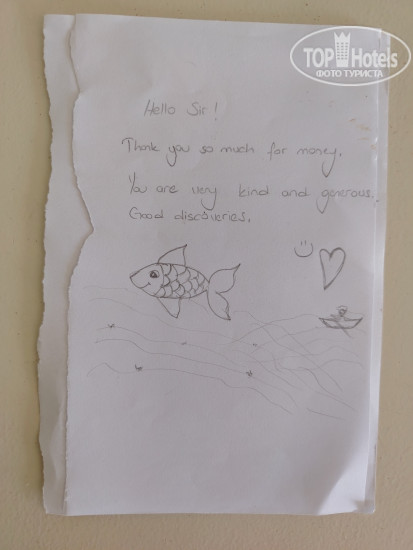 TOP Hotels
ФОТО ТУРИСТА
Hello Sir!
Thank you so much for money.
You are very kind and generous.
Good discoveries.